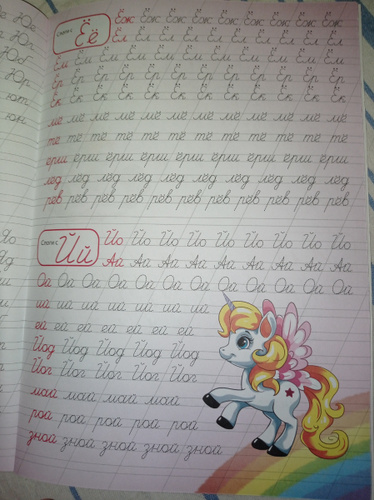 Слоги с Ёё
Ёж Ёж Ёж Ёж Ёж Ёж Ёж Ёж Ёж
Ёл Ёл Ёл Ёл Ёл Ёл Ёл Ёл Ёл Ёл
Ём Ём Ём Ём Ём Ём Ём Ём Ём Ём Ём Ём
Ёр Ёр Ёр Ёр Ёр Ёр Ёр Ёр Ёр Ёр Ёр Ёр
Ёк Ёк Ёк Ёк Ёк Ёк Ёк Ёк Ёк Ёк Ёк Ёк
мё мё мё мё мё мё мё мё мё мё
тё тё тё тё тё тё тё тё тё тё
ёрш ёрш ёрш ёрш ёрш ёрш ёрш ёрш ёрш
лёд лёд лёд лёд лёд лёд лёд лёд лёд
рёв рёв рёв рёв рёв рёв рёв рёв рёв рёв
Слоги с Йй
Йо Йо Йо Йо Йо Йо Йо Йо Йо
Ай Ай Ай Ай Ай Ай Ай Ай Ай
Ой Ой Ой Ой Ой Ой Ой Ой Ой Ой Ой Ой
ий ий ий ий ий ий ий
ей ей ей ей ей ей ей
Йод Йод Йод Йод Йод
Йог Йог Йог Йог Йог
май май май май май
рой рой рой рой рой
зной зной зной зной зной